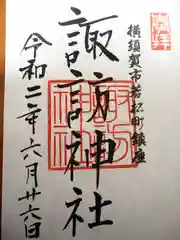 横須賀市若松町鎮座
諏訪神社
令和二年六月廿六日